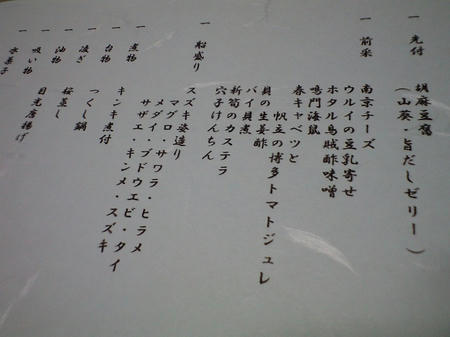 一 先付
胡麻豆腐
(山葵・旨だしゼリー)
一 前菜
南京チーズ
ウルイの豆乳寄せ
ホタル烏賊酢味噌
鳴門海鼠
春キャベツと
帆立の博多トマトジュレ
貝の生姜酢
バイ貝煮
新筍のカステラ
穴子けんちん
一 船盛り
スズキ姿造り
マグロ・サワラ・ヒラメ
メダイ・ブドウエビ・タイ
サザエ・キンメ・スズキ
一 煮物
キンキ煮付
一 台物
つくし鍋
一 凌ぎ
桜蒸し
一 油物
目光唐揚げ
一 吸い物
一 水菓子